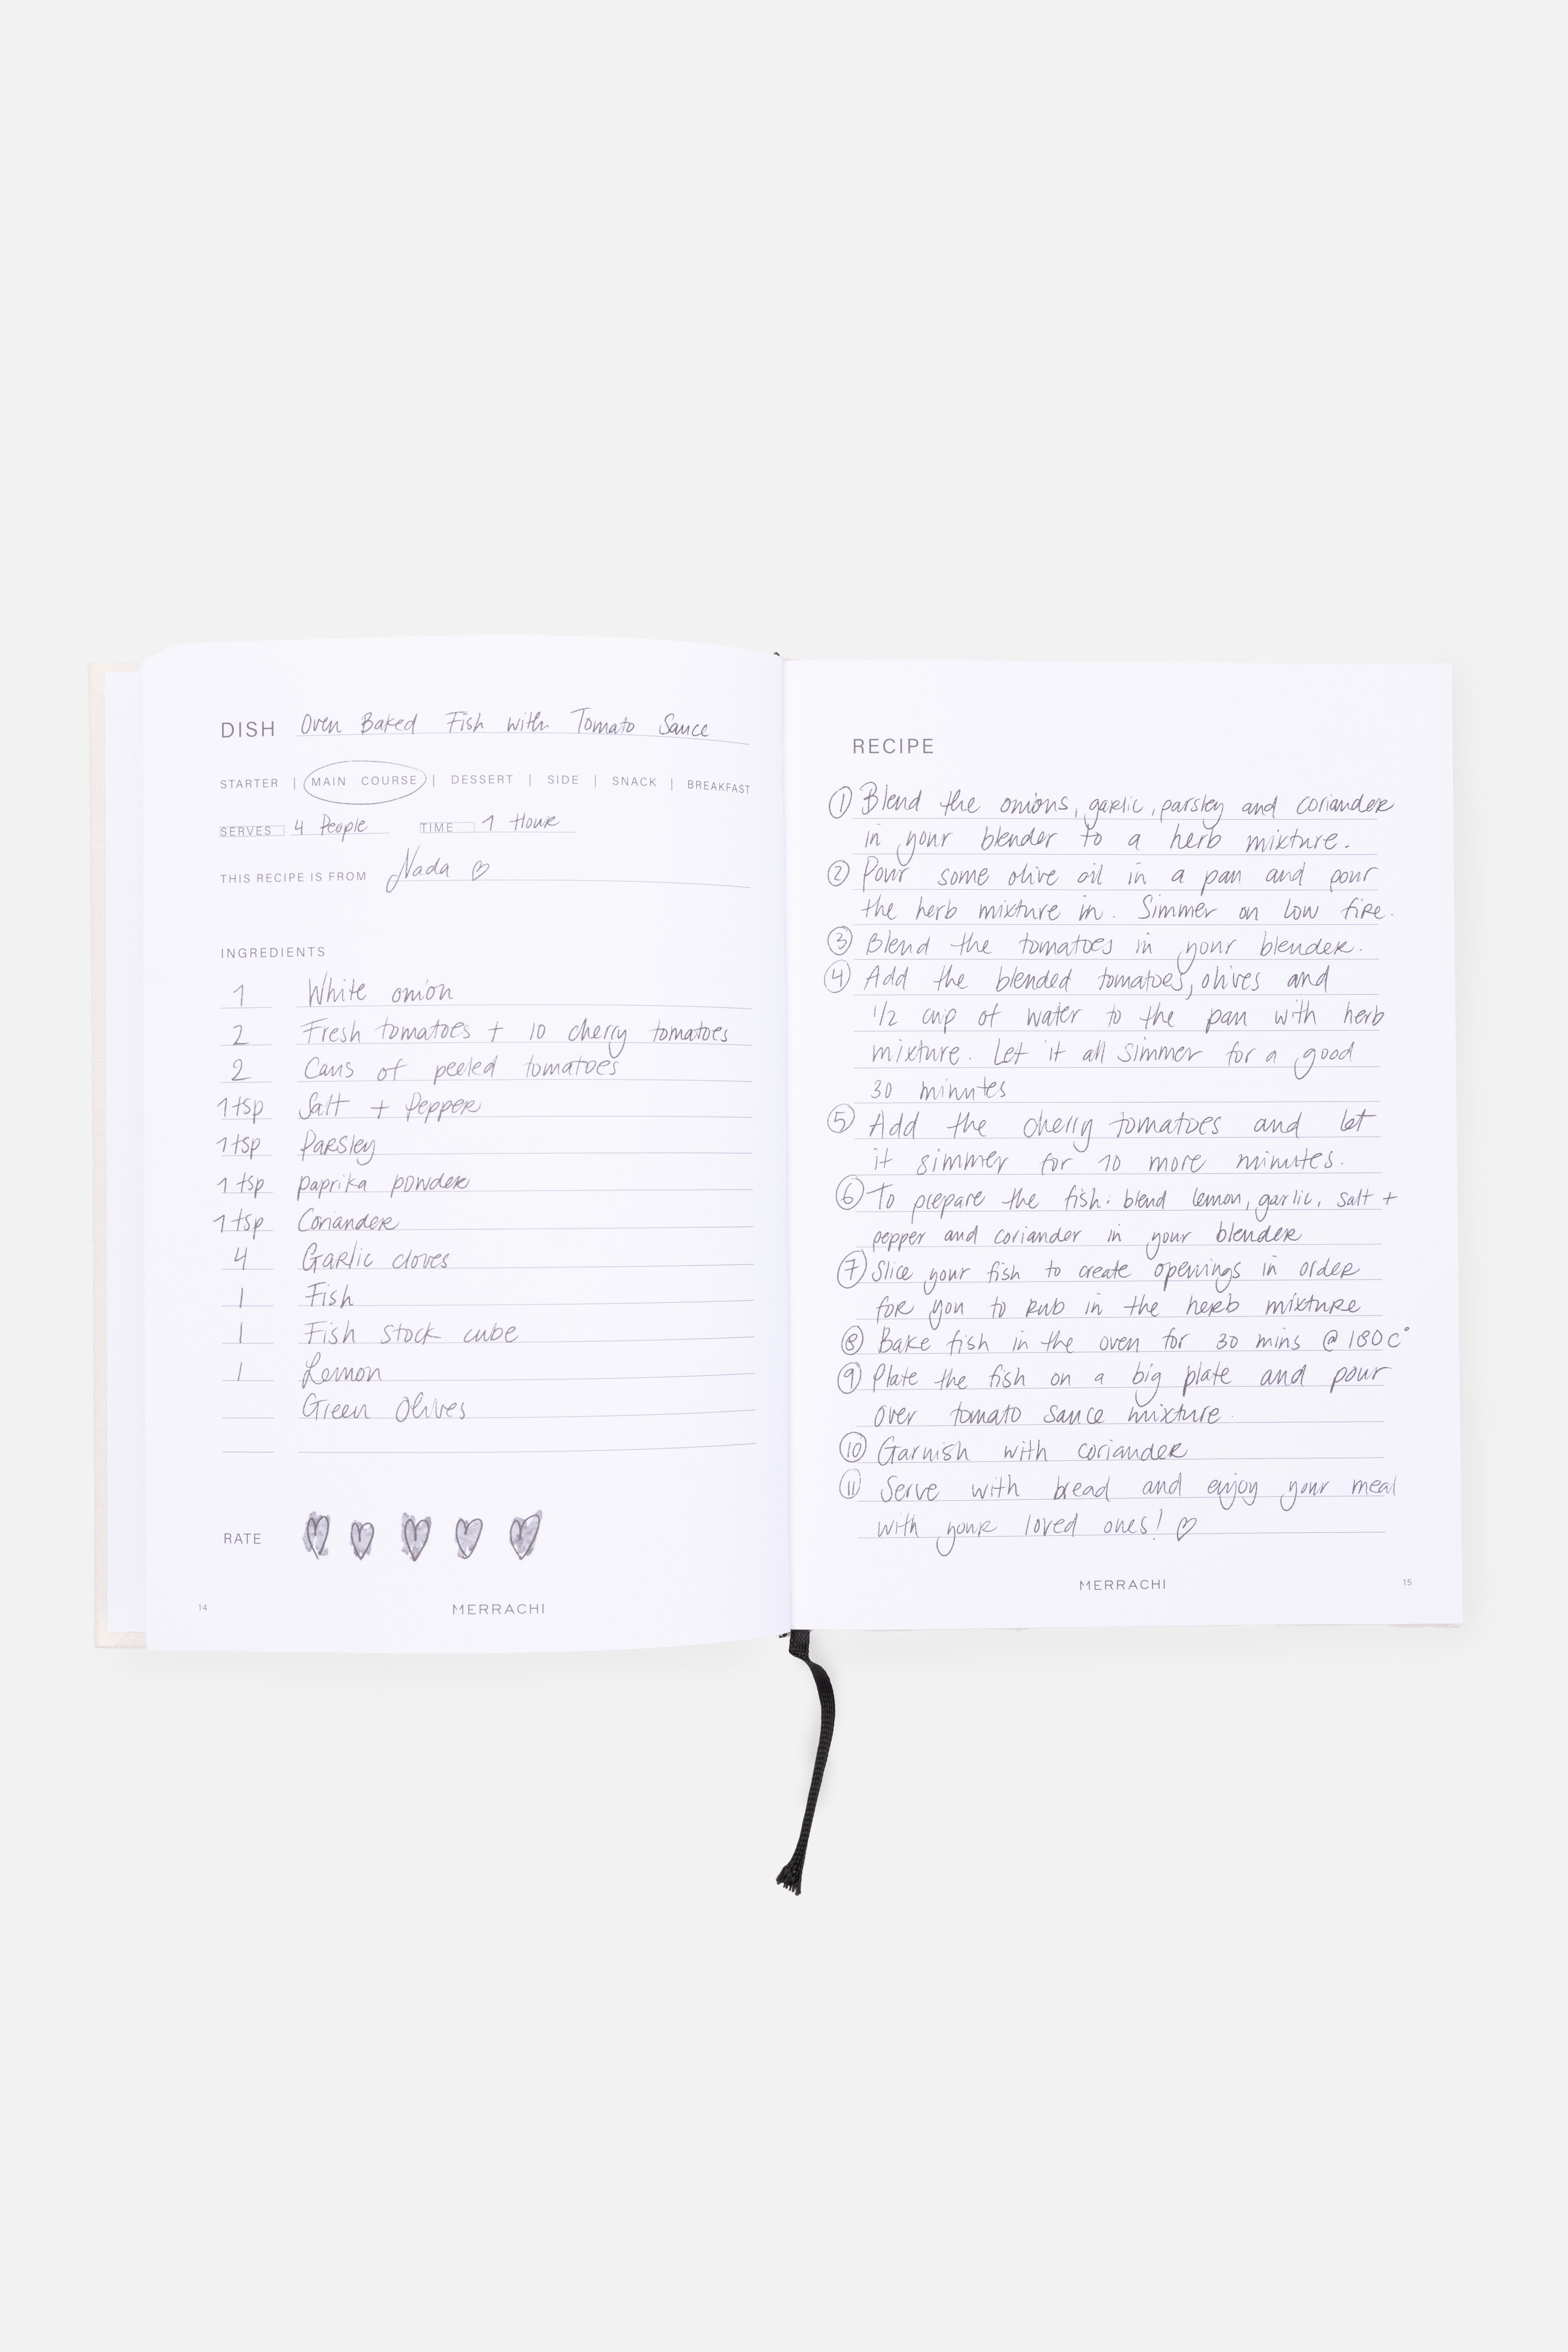 DISH Oven Baked Fish with Tomato Sauce
STARTER | MAIN COURSE | DESSERT | SIDE | SNACK | BREAKFAST
SERVES 4 People TIME 1 Hour
THIS RECIPE IS FROM Nada ♡
INGREDIENTS
1 White onion
2 Fresh tomatoes + 10 cherry tomatoes
2 Cans of peeled tomatoes
1 tsp Salt + Pepper
1 tsp Parsley
1 tsp paprika powder
1 tsp Coriander
4 Garlic cloves
1 Fish
1 Fish stock cube
1 Lemon
Green Olives
RATE
14
MERRACHI
RECIPE
① Blend the onions, garlic, parsley and coriander
in your blender to a herb mixture.
② Pour some olive oil in a pan and pour
the herb mixture in. Simmer on low fire.
③ Blend the tomatoes in your blender.
④ Add the blended tomatoes, olives and
1/2 cup of water to the pan with herb
mixture. Let it all simmer for a good
30 minutes
⑤ Add the cherry tomatoes and let
it simmer for 10 more minutes.
⑥ To prepare the fish: blend lemon, garlic, salt +
pepper and coriander in your blender
⑦ Slice your fish to create openings in order
for you to rub in the herb mixture
⑧ Bake fish in the oven for 30 mins @ 180 C°
⑨ Plate the fish on a big plate and pour
over tomato sauce mixture.
⑩ Garnish with coriander
⑪ Serve with bread and enjoy your meal
with your loved ones! ♡
MERRACHI
15